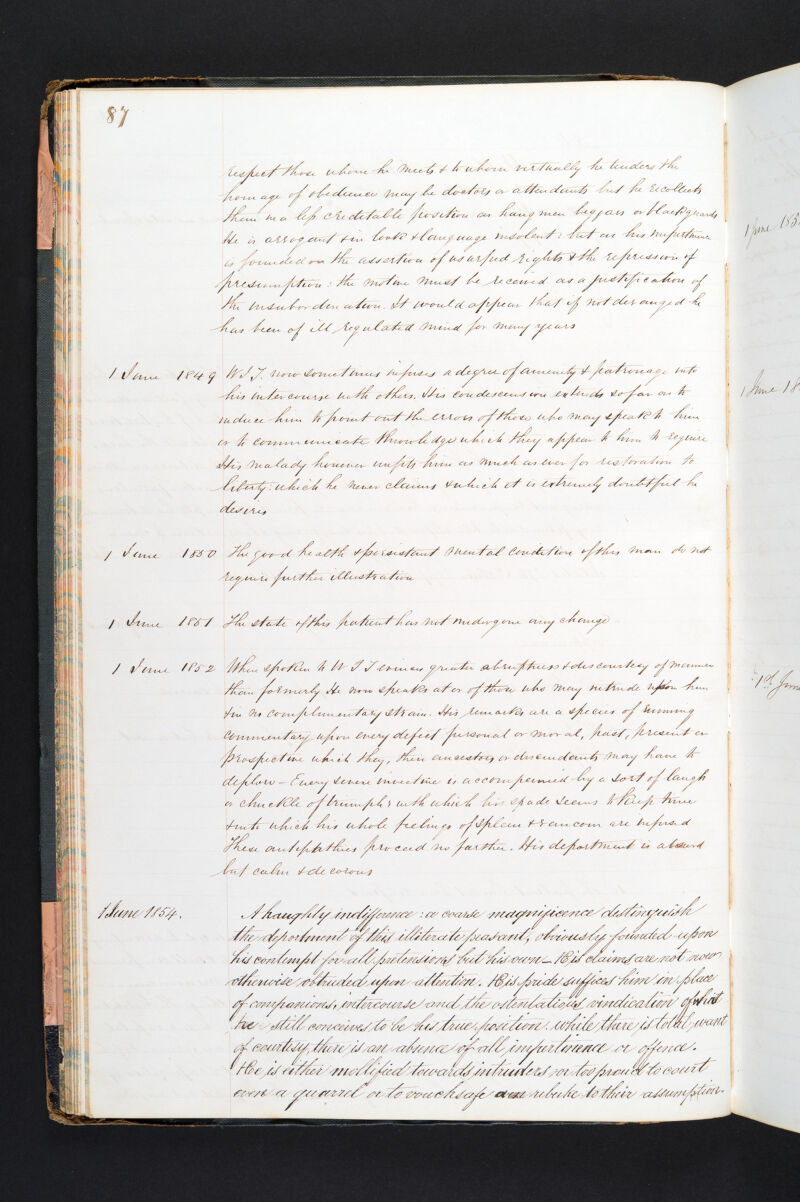 87
respect those whom he meets & to whom virtually he tenders the
homage of obedience may be doctors or attendants but he recollects
them in a less creditable position as hangmen beggars or blackguards
He is arrogant & in look & language insolent: but as his impertinence
is founded on the assertion of usurped rights & the repression of
presumption: the motive must be received as a justification of
the insubordination. It would appear that if not deranged he
has been of ill regulated mind for many years
1 June 1849 W.J.J. now sometimes infuses a degree of amenity & patronage into
his intercourse with others. His condescension extends so far as to
induce him to point out the errors of those who may speak to him
or to communicate knowledge which they appear to him to require
His malady however unfits him as much as ever for restoration to
liberty: which he never claims & which it is extremely doubtful he
desires
1 June 1850 The good health & persistent mental condition of this man do not
require further illustration
1 June 1851 The state of this patient has not undergone any change
1 June 1852 When spoken to W J J evinces greater abruptness & discourtesy of manner
than formerly He now speaks at or of those who may intrude upon him
& in no complimentary strain. His remarks are a species of running
commentary upon every defect personal or moral, past, present or
prospective which they, their ancestors or descendants may have to
deplore – Every severe invective is accompanied by a sort of laugh
or chuckle of triumph: with which his spade seems to keep time
& into which his whole feelings of spleen & rancour are infused
These antipathies proceed no farther. His deportment is absurd
but calm & decorous
1 June 1854. A haughty indifference: a coarse magnificence distinguish
the deportment of this illiterate peasant, obviously founded upon
his contempt for all pretensions but his own – His claims are not now
otherwise obtruded upon attention. His pride suffices him in place
of companions, intercourse and the ostentatious vindication of what
he still conceives to be his true position. while there is total want
of courtesy, there is an absence of all impertinence or offence.
He is either mollified towards intruders, or too proud to court
even a quarrel or to vouchsafe a rebuke to their assumption.
1 June 185
1 June 18
1st June